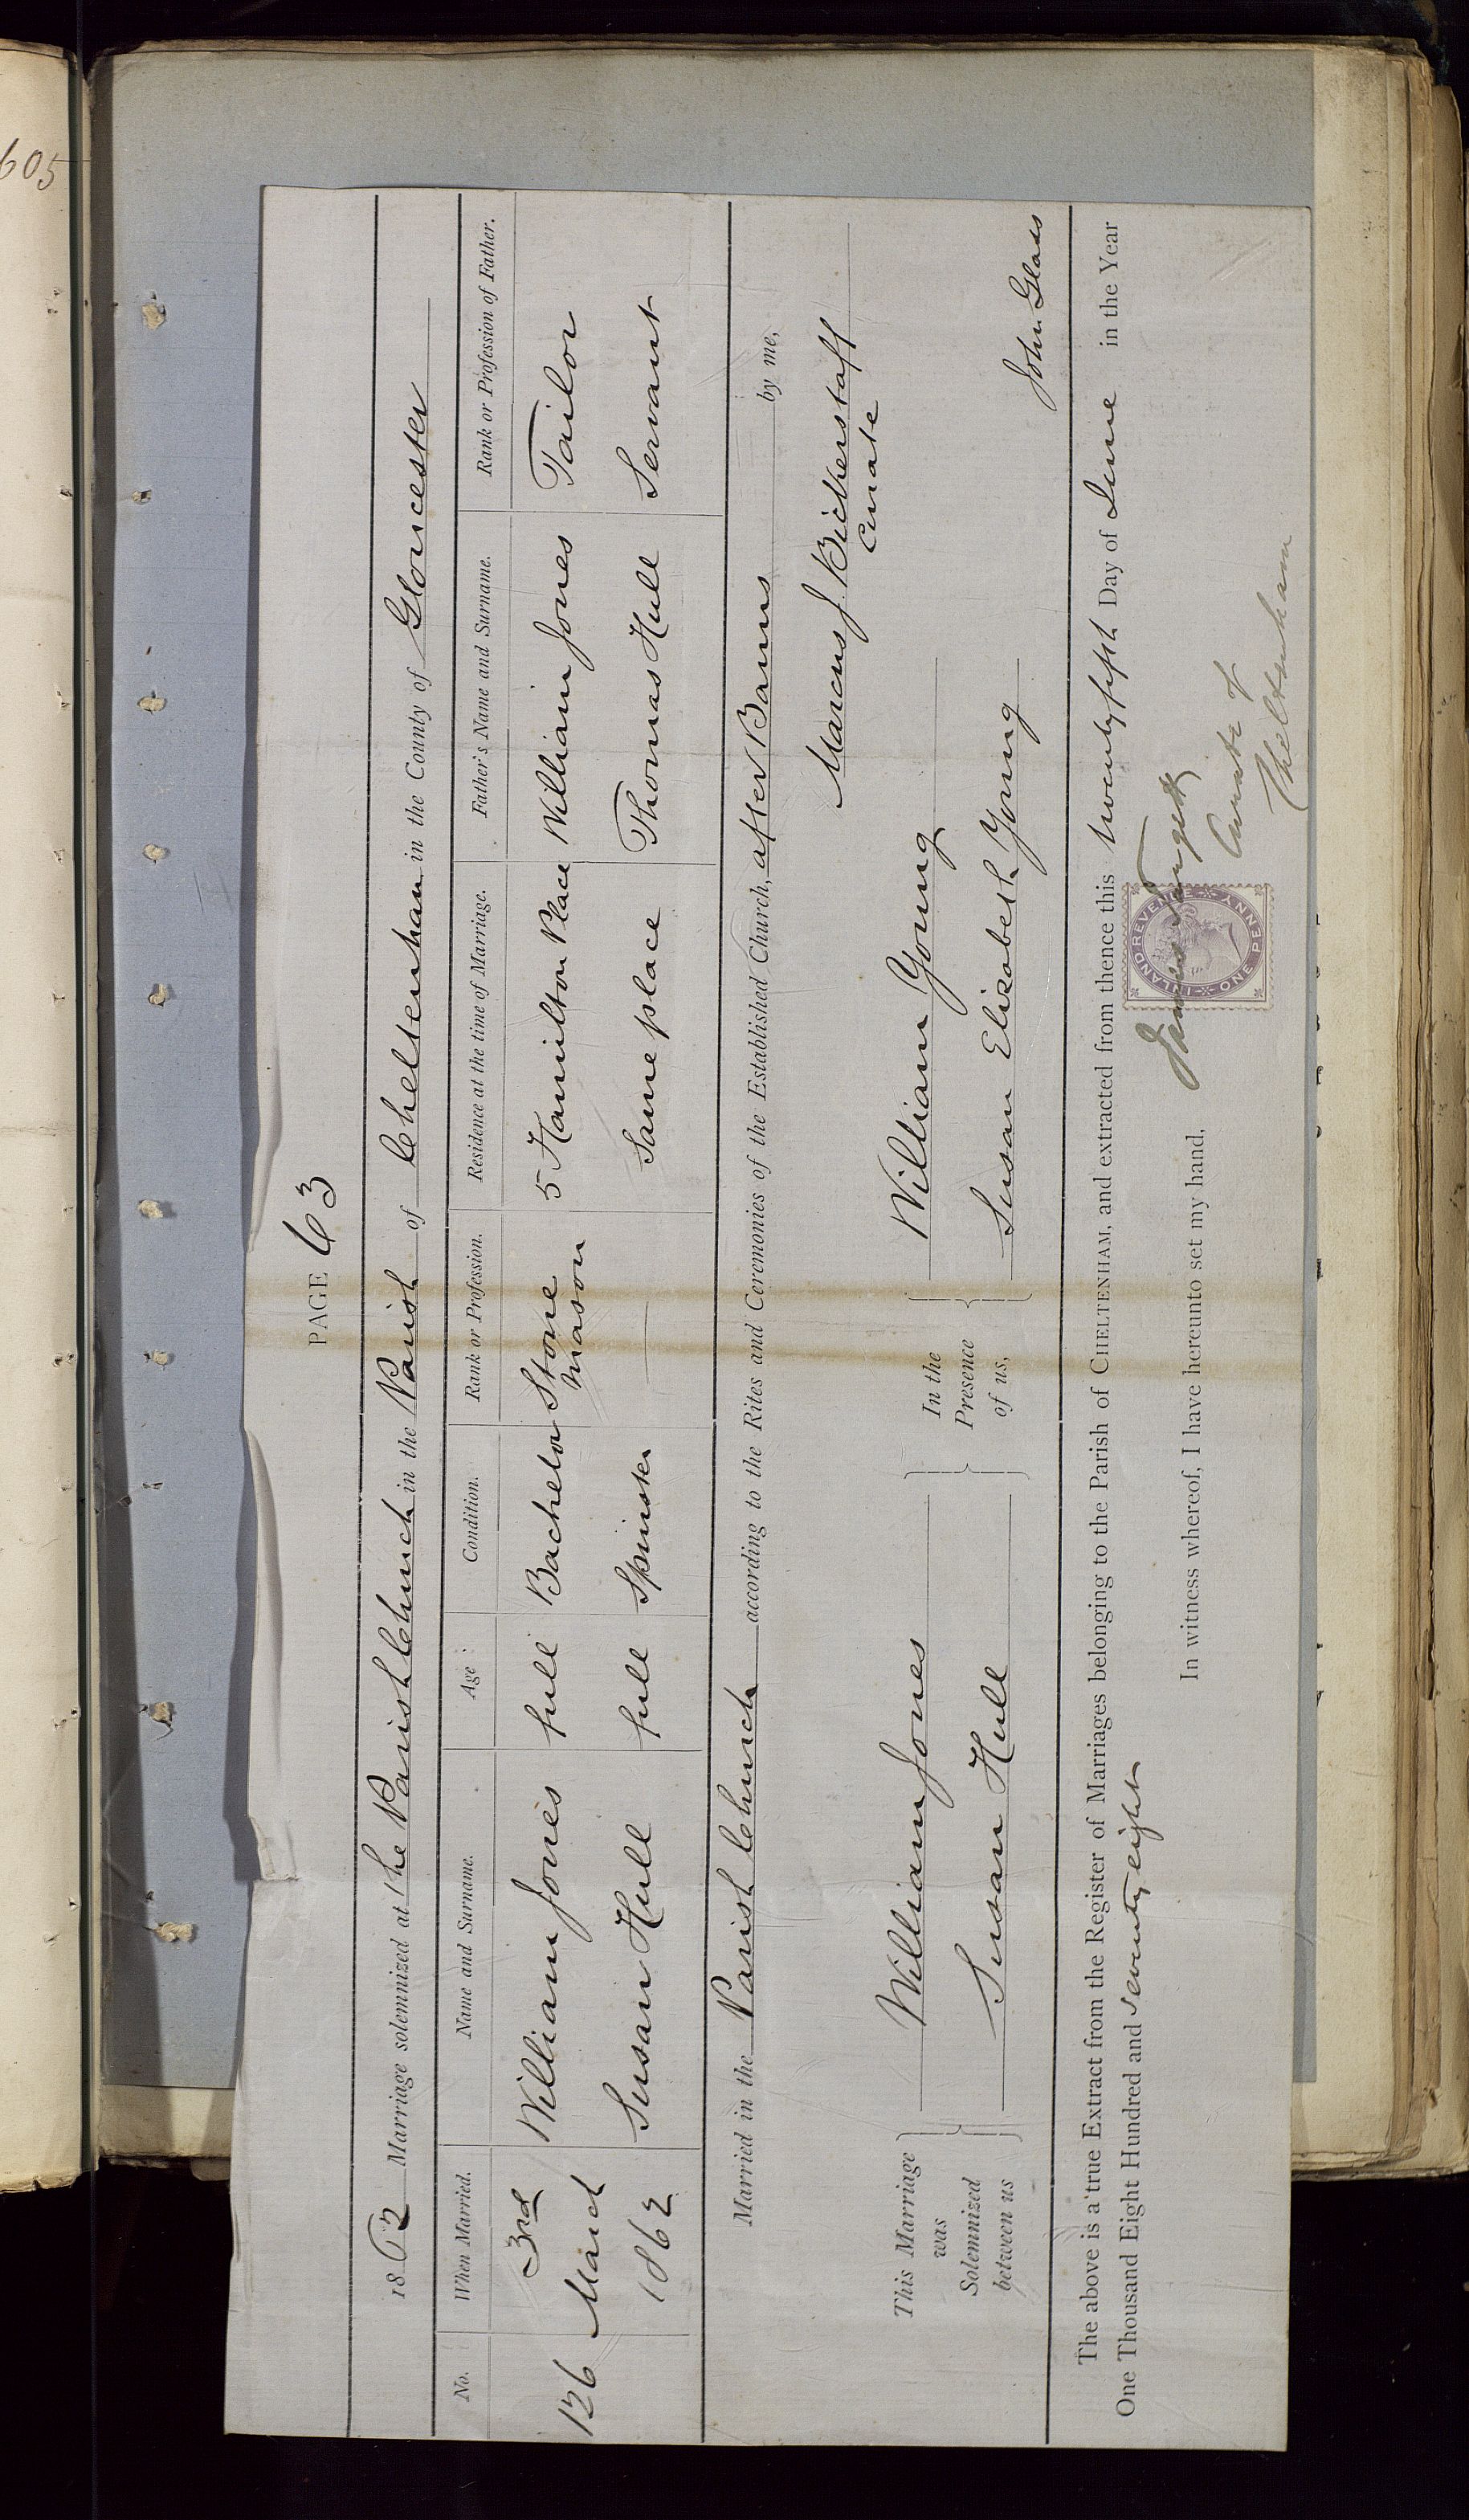 605
PAGE 63
1862 Marriage solemnized at the Parish Church in the Parish of Cheltenham in the County of Gloucester
No. When Married. Name and Surname. Age Condition. Rank or Profession. Residence at the time of Marriage. Father's Name and Surname. Rank or Profession of Father.
126 3rd March 1862 William Jones full Bachelor Stone Mason 5 Hamilton Place William Jones Tailor
Susan Hull full Spinster — Same place Thomas Hull Servant
Married in the Parish Church according to the Rites and Ceremonies of the Established Church, after Banns by me,
Marcus J. Bickerstaff
Curate
This Marriage was Solemnized between us
William Jones
Susan Hull
In the Presence of us,
William Young
Susan Elizabeth Young
John Glass
The above is a true Extract from the Register of Marriages belonging to the Parish of CHELTENHAM, and extracted from thence this twenty fifth Day of June in the Year
One Thousand Eight Hundred and seventy eight
In witness whereof, I have hereunto set my hand,
James
Curate of
Cheltenham
INLAND REVENUE
ONE PENNY